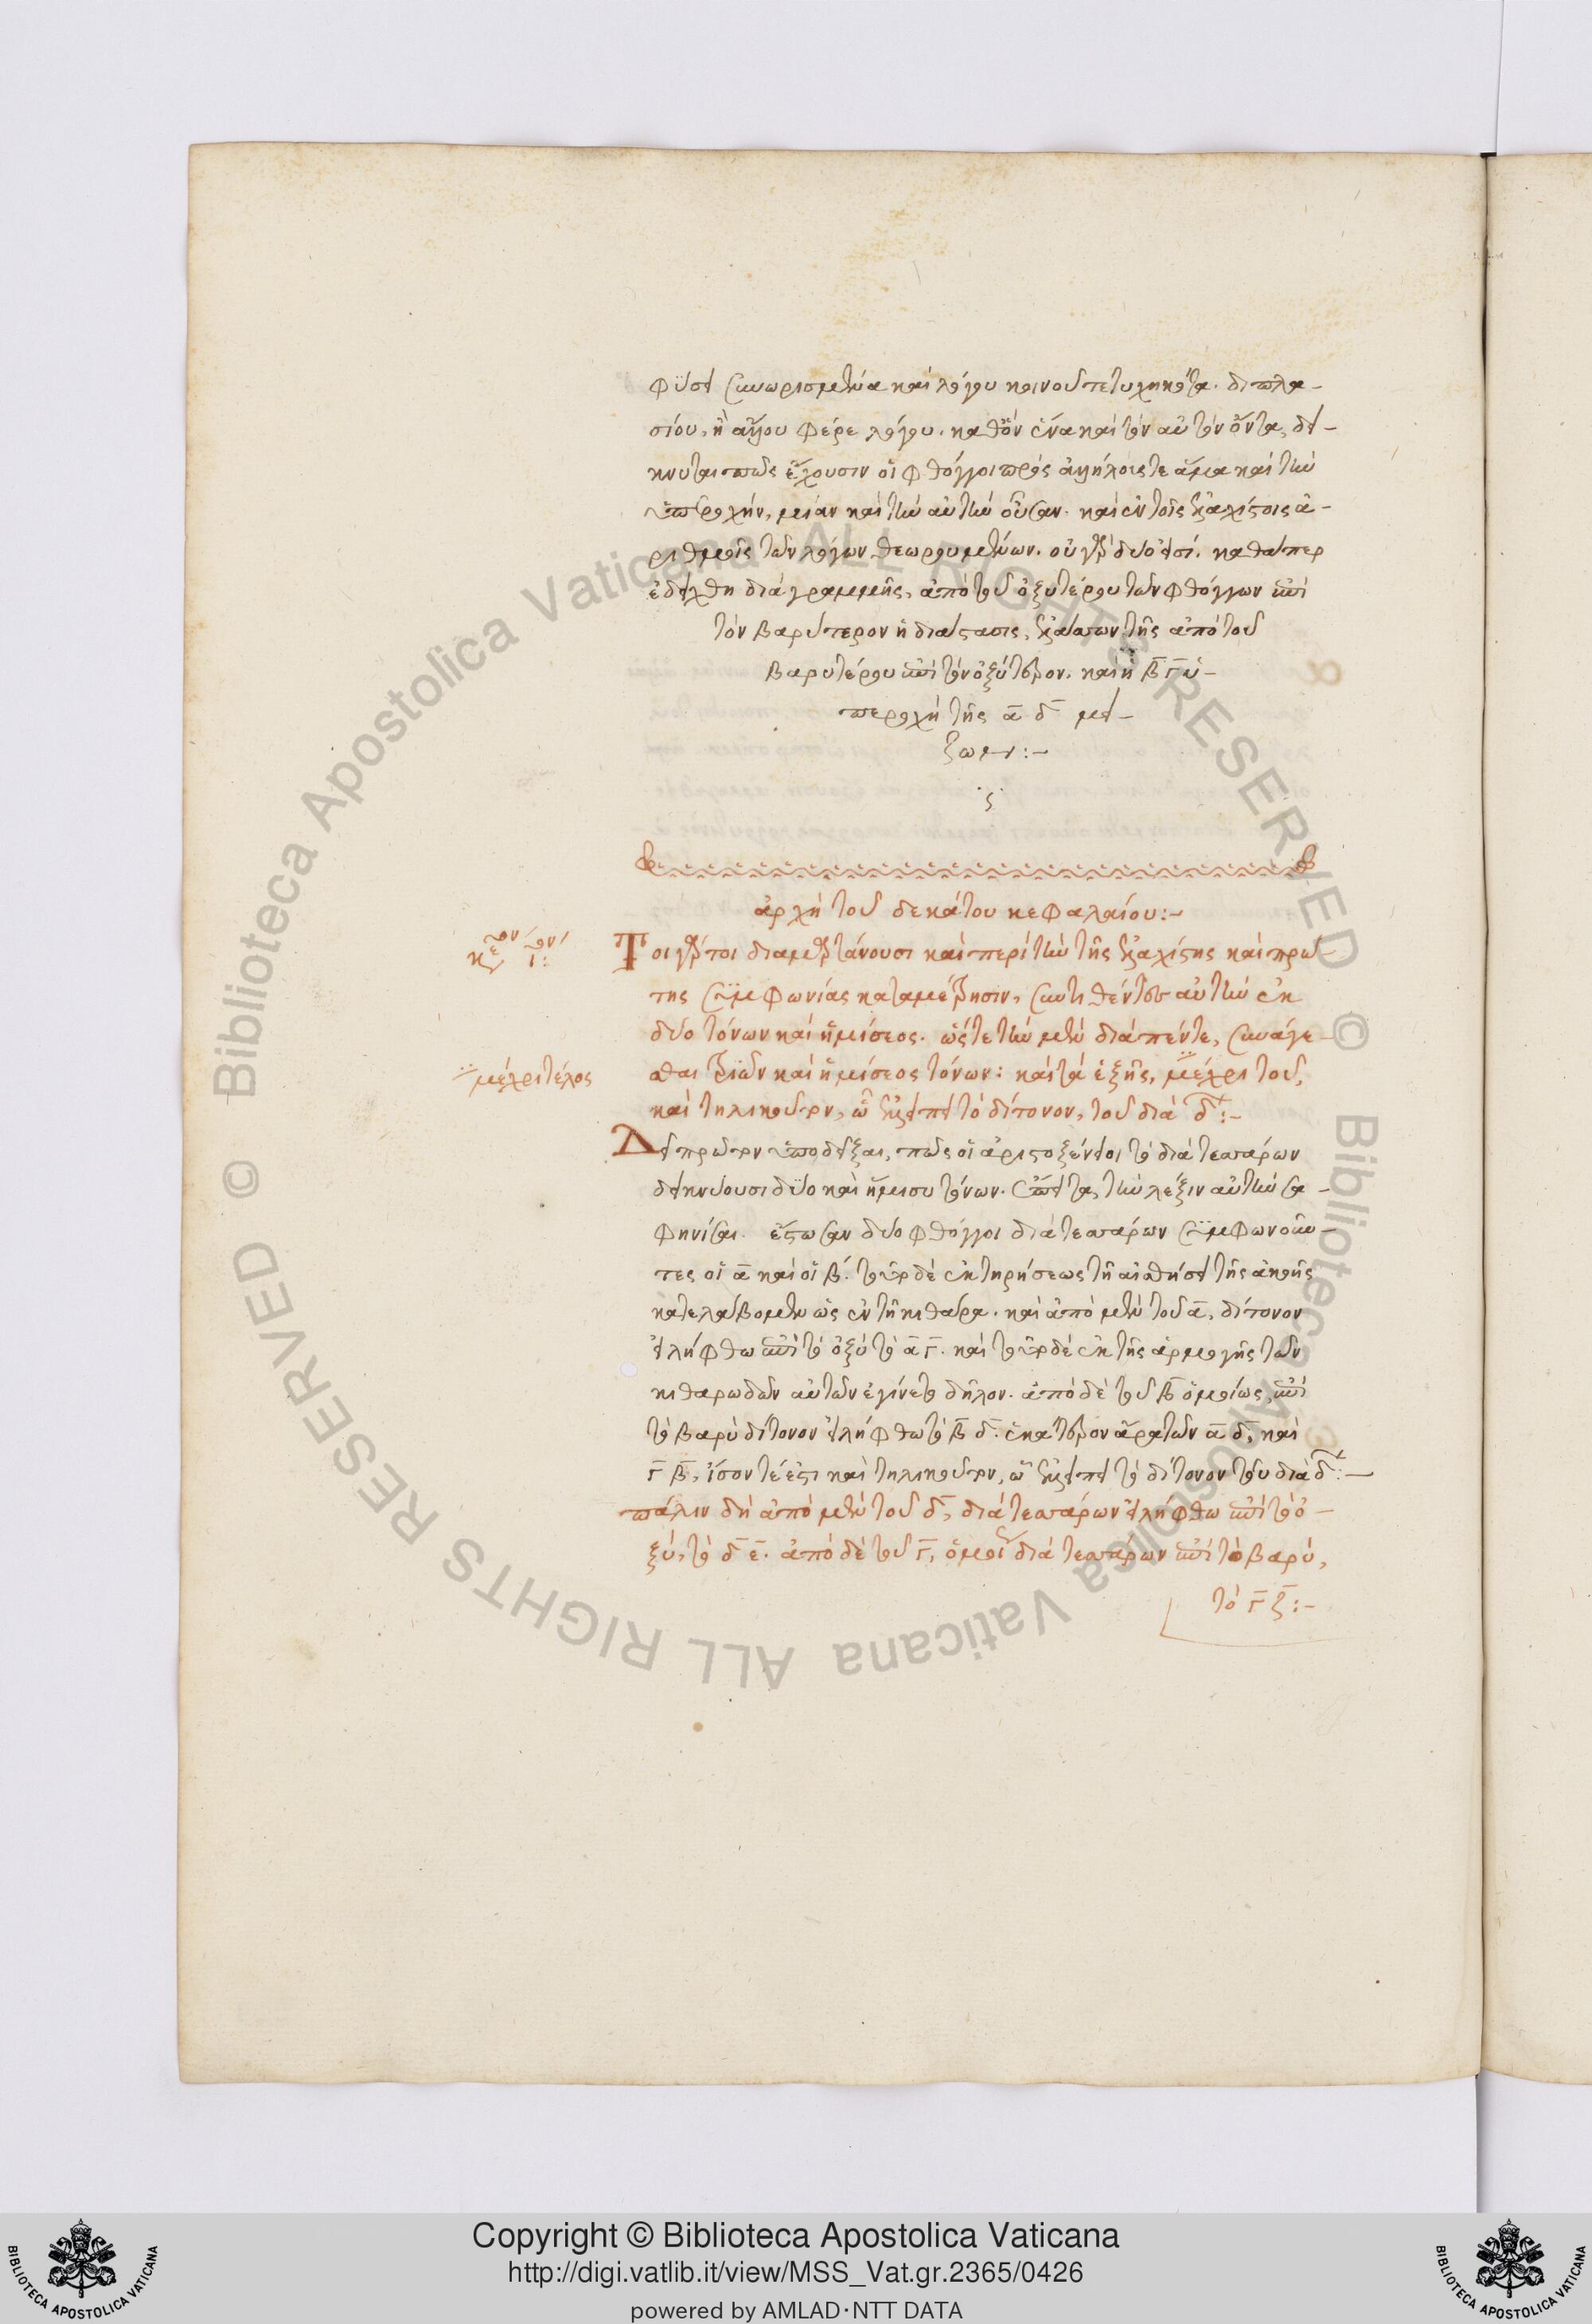 φύσει συνωρισμένα καὶ λόγου κοινοῦ τετυχηκότα. διπλα-
σίου, ἢ ἄλλου φέρε λόγου. καθ' ὃν ἕνα καὶ τὸν αὐτὸν ὄντα, δεί-
κνυται πῶς ἔχουσιν οἱ φθόγγοι πρὸς ἀλλήλους τε ἅμα καὶ τὴν
ὑπεροχήν, μίαν καὶ τὴν αὐτὴν οὖσαν. καὶ ἐν τοῖς ἐλαχίστοις ἀ-
ριθμοῖς τῶν λόγων θεωρουμένων. οὐ γὰρ δύο εἰσί. καθάπερ
ἐδείχθη διὰ γραμμῆς, ἀπὸ τοῦ ὀξυτέρου τῶν φθόγγων ἐπὶ
τὸν βαρύτερον ἡ διάστασις, ἐλάττων τῆς ἀπὸ τοῦ
βαρυτέρου ἐπὶ τὸν ὀξύτερον. καὶ ἡ β γ ὑ-
περοχὴ τῆς α δ μεί-
ζων:-
ἀρχὴ τοῦ δεκάτου κεφαλαίου:-
Τοιγάρτοι διαμαρτάνουσι καὶ περὶ τὴν τῆς ἐλαχίστης καὶ πρώ-
της συμφωνίας καταμέτρησιν, συντιθέντες αὐτὴν ἐκ
δύο τόνων καὶ ἡμίσεος. ὥστε τὴν μὲν διὰ πέντε, συνάγε-
σθαι τριῶν καὶ ἡμίσεος τόνων: καὶ τὰ ἑξῆς, μέχρι τοῦ,
καὶ τηλικοῦτον, ᾧ ἐλλείπει τὸ δίτονον, τοῦ διὰ δ:-
μέχρι τέλος
Δεῖ πρῶτον ὑποδεῖξαι, πῶς οἱ ἀριστοξένειοι τὸ διὰ τεσσάρων
δεικνύουσι δύο καὶ ἥμισυ τόνων. ἔπειτα, τὴν λέξιν αὐτὴν σα-
φηνίσαι. ἔστωσαν δύο φθόγγοι διὰ τεσσάρων συμφωνοῦν-
τες οἱ α καὶ οἱ β. τοῦτο δὲ ἐκ τηρήσεως τῇ αἰσθήσει τῆς ἀκοῆς
κατελάβομεν ὡς ἐν τῇ κιθάρα. καὶ ἀπὸ μὲν τοῦ α, δίτονον
εἰλήφθω ἐπὶ τὸ ὀξὺ τὸ α γ. καὶ τοῦτο δὲ ἐκ τῆς ἁρμογῆς τῶν
κιθαρωδῶν αὐτῶν ἐγίνετο δῆλον. ἀπὸ δὲ τοῦ β ὁμοίως, ἐπὶ
τὸ βαρὺ δίτονον εἰλήφθω τὸ β δ. ἑκάτερον ἄρα τῶν α δ, καὶ
γ β, ἴσον τέ ἐστι καὶ τηλικοῦτον, ᾧ ἐλλείπει τὸ δίτονον τοῦ διὰ δ:-
πάλιν δὴ ἀπὸ μὲν τοῦ δ, διὰ τεσσάρων εἰλήφθω ἐπὶ τὸ ὀ-
ξύ, τὸ δ ε. ἀπὸ δὲ τοῦ γ, ὁμοί διὰ τεσσάρων ἐπὶ τὸ βαρύ,
τὸ γ ζ:-
Copyright © Biblioteca Apostolica Vaticana
http://digi.vatlib.it/view/MSS_Vat.gr.2365/0426
powered by AMLAD·NTT DATA
BIBLIOTECA APOSTOLICA VATICANA
BIBLIOTECA APOSTOLICA VATICANA
© Biblioteca Apostolica Vaticana ALL RIGHTS RESERVED
© Biblioteca Apostolica Vaticana ALL RIGHTS RESERVED